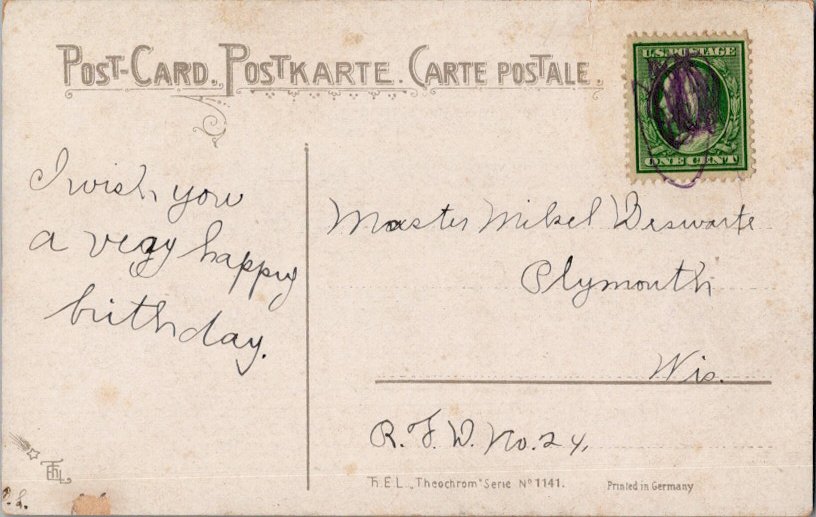 POST-CARD. POSTKARTE. CARTE POSTALE.
U.S. POSTAGE
ONE CENT
I wish you
a very happy
birthday.
Master
Plymouth
Wis.
R. F. D. No. 24.
T.E.L. „Theochrom" Serie Nº 1141.
Printed in Germany